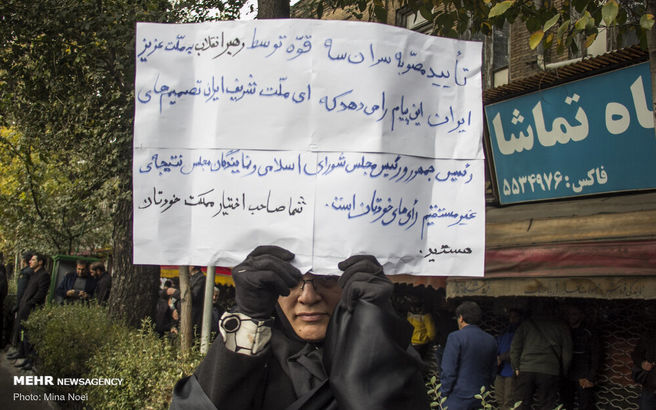 تأیید مصوّبه سران سه قوّه توسط رهبر انقلاب به ملّت عزیز
ایران این پیام را می‌دهد که ای ملّت شریف ایران تصمیم‌های
رئیس جمهور و رئیس مجلس شورای اسلامی و نمایندگان مجلس نتیجه‌ای
غیر مستقیم رأی‌های خودتان است. شما صاحب اختیار مملکت خودتان
هستید.
ماه تماشا
فاکس: ۵۵۳۴۹۷۶
MEHR NEWSAGENCY
Photo: Mina Noei